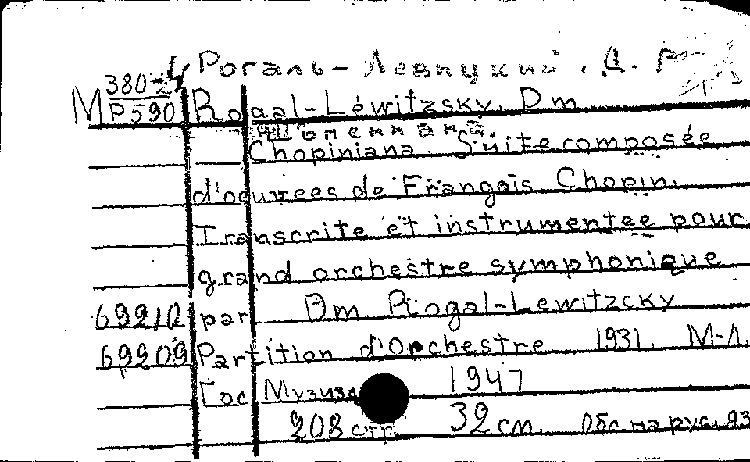 380-4 Рогаль-Левицкий, Д. Р
М Р590 Rogal-Léwitzsky, Dm
Шопениана.
Chopiniana. Suite composée
d'oeuvrees de Frangois Chopin.
Transcrite et instrumentée pour
grand orchestre symphonique
69210 par Dm Rogal-Lewitzcky
69209 Partition d'Orchestre 1931. М-Л.
Гос Музиз 1947
208 стр. 32 см. Обл на рус. яз